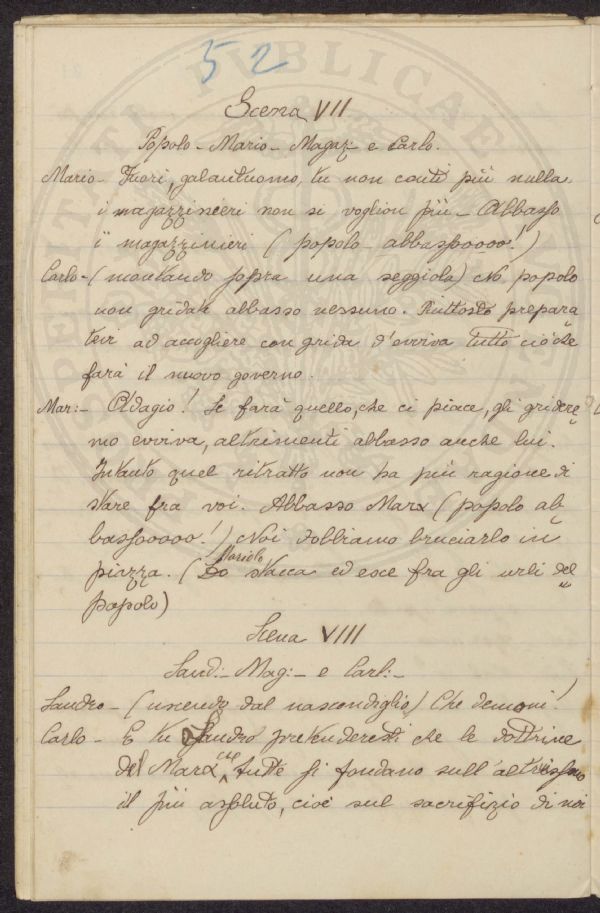 52
Scena VII
Popolo - Mario - Magaz - e Carlo.
Mario - Fuori, galantuomo, tu non conti più nulla.
i magazzineeri non si voglion più - Abbasso
i magazzinieri (popolo abbassoooo!)
Carlo - (montando sopra una seggiola) No popolo
non gridate abbasso nessuno. Piuttosto prepara
tevi ad accogliere con grida d'evviva tutto ciò che
farà il nuovo governo.
Mar:- Adagio! Se farà quello, che ci piace, gli gridere
mo evviva, altrimenti abbasso anche lui.
Intanto quel ritratto non ha più ragione di
stare fra voi. Abbasso Marx (popolo ab
bassooooo!) Noi dobbiamo bruciarlo in
piazza. (Lo Mariolo stacca ed esce fra gli urli del
popolo)
Scena VIII
Sand:- Mag:- e Carl:-
Sandro - (uscendo dal nascondiglio) Che demoni!
Carlo - E tu Sandro pretenderesti che le dottrine
del Marx che tutte si fondano sull'altruismo
il più assoluto, cioè sul sacrifizio di noi